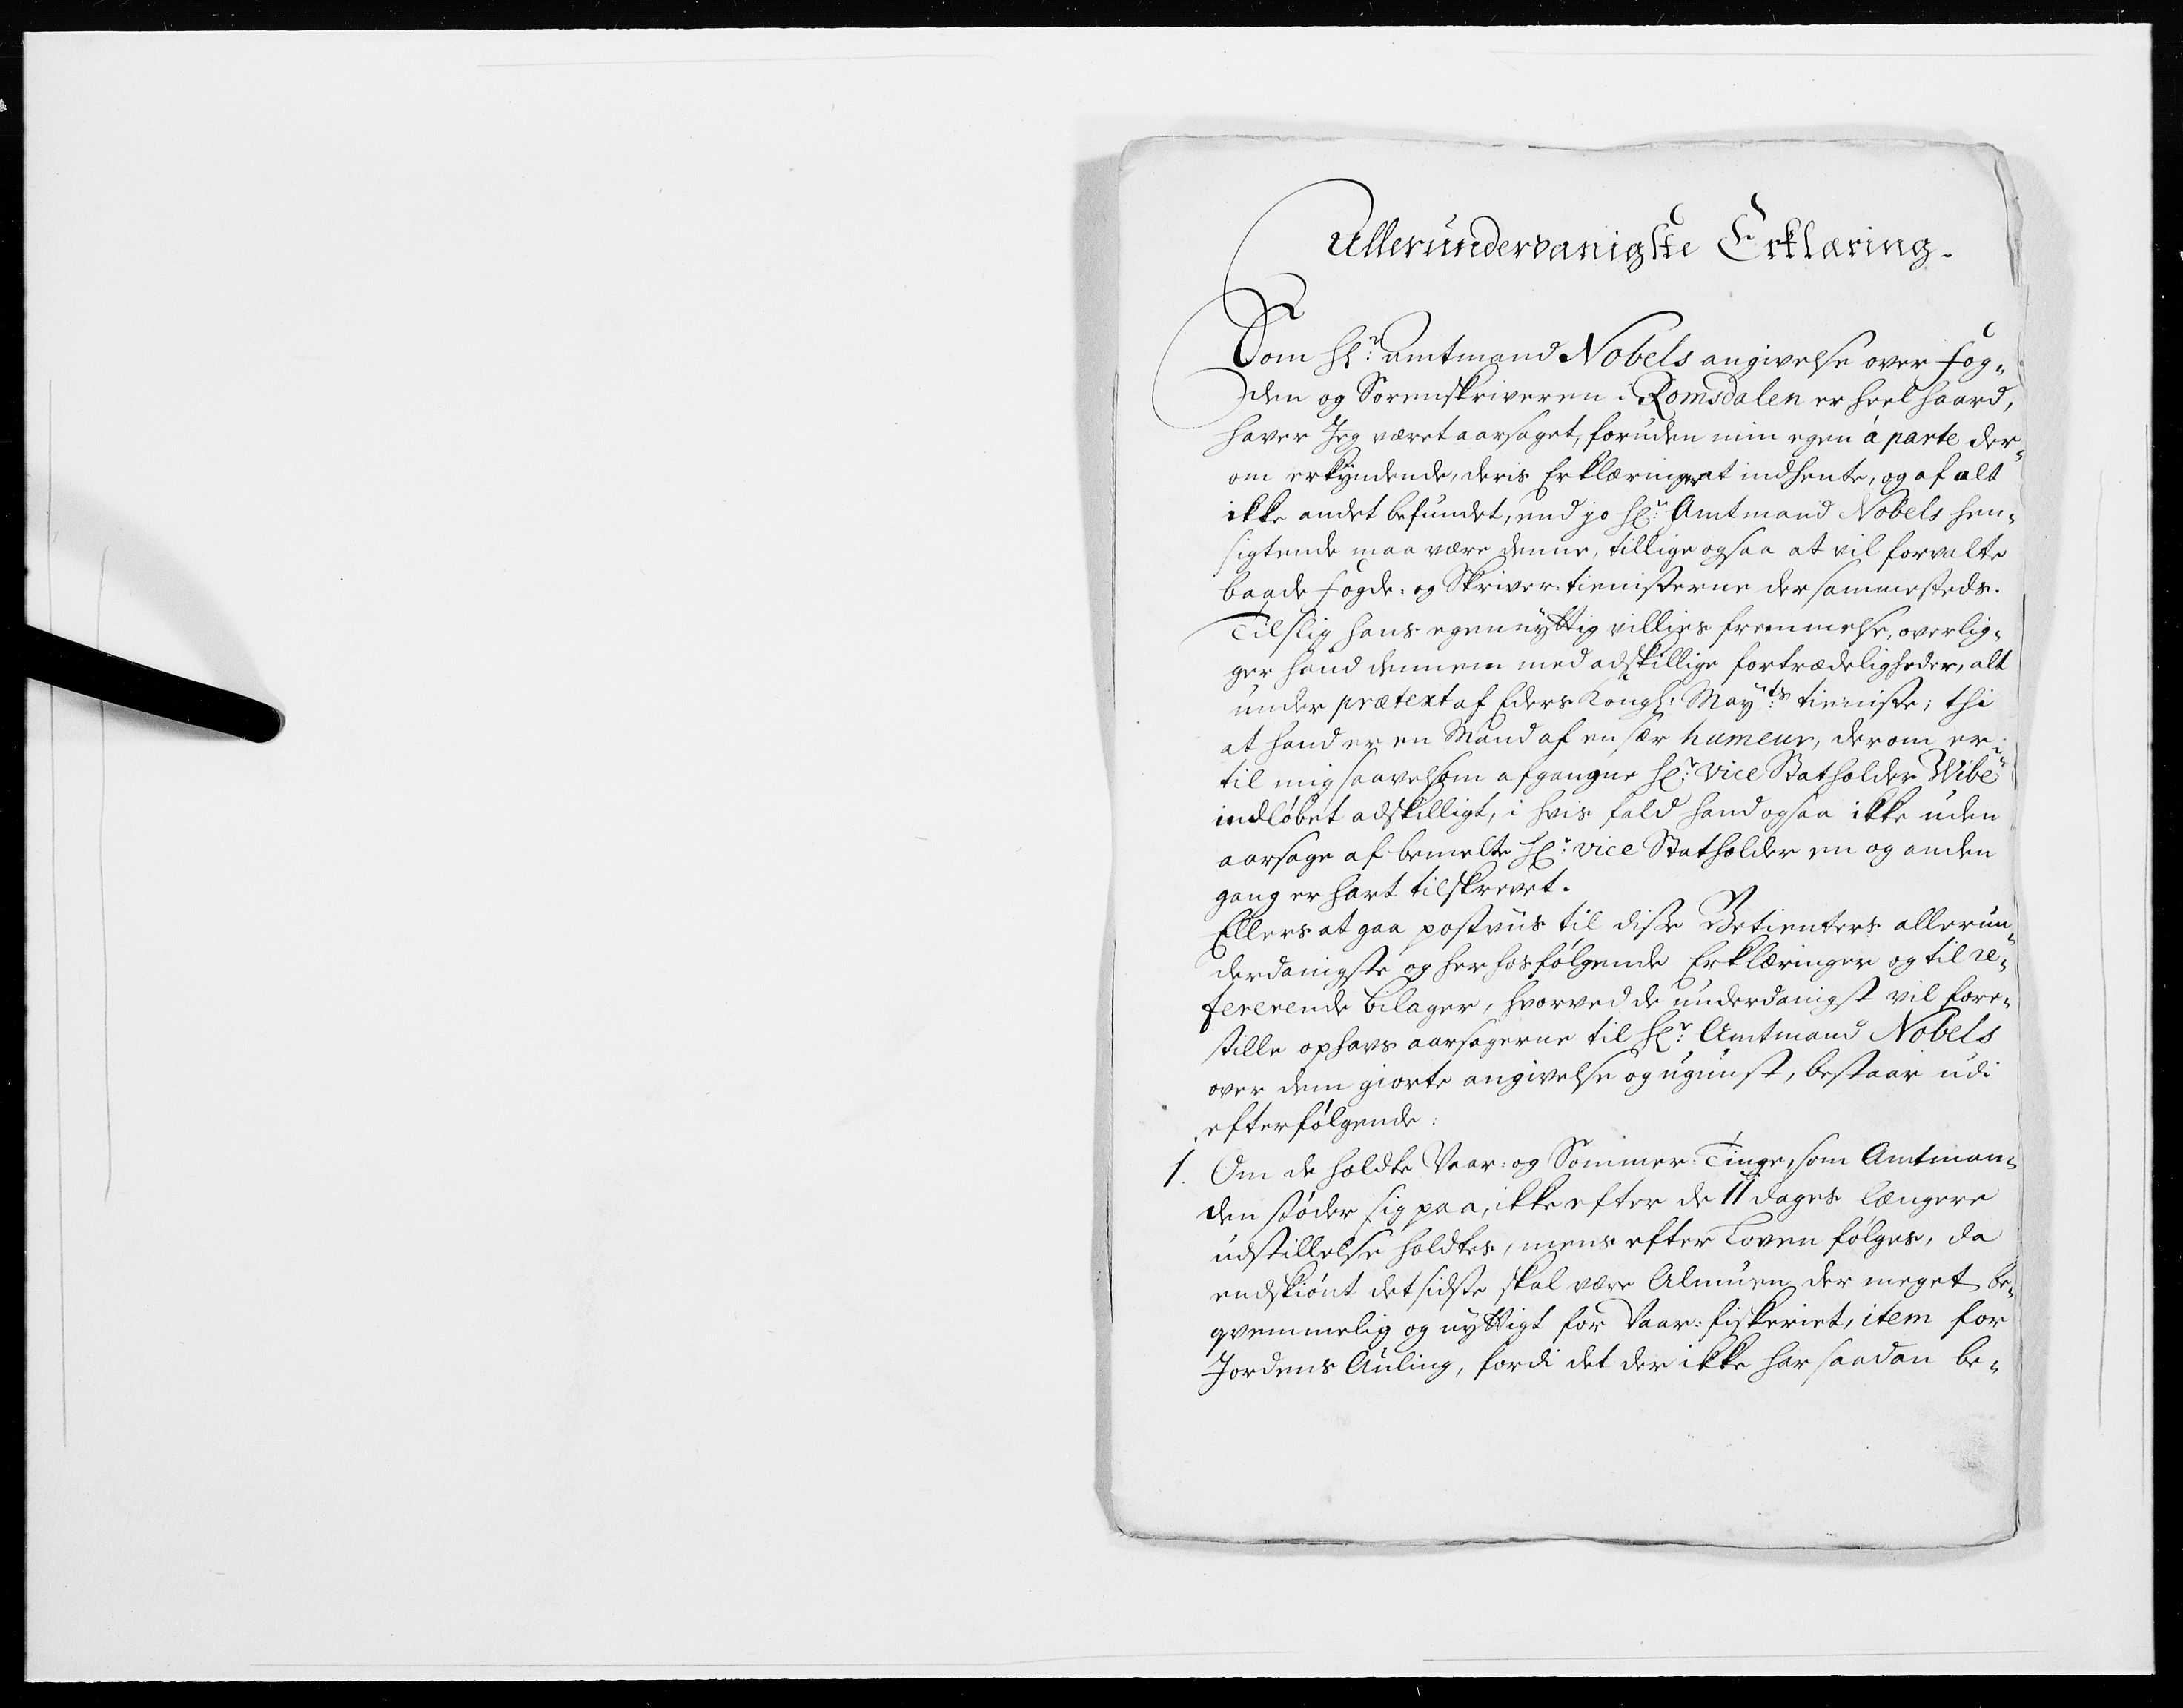 Allerunderdanigste Erklæring.
Som Hr: Amtmand Nobels angivelse over fog„
den og Sorenskriveren i Romsdalen er heel haard,
haver Jeg været aarsaget, foruden min egen á parte der„
om erkyndende, deris Erklæringer at indhente, og af alt
ikke andet befundet, end jo Hr: Amtmand Nobels hen„
sigtende maa være denne, tillige ogsaa at vil forvalte
baade fogde: og Skriver tienisterne der sammesteds.
Til slig hans egennyttig villies fremmelse, overlig„
ger hand dennem med adskillige fortrædeligheder, alt
under prætext af Eders Kongl: Mayts: tieniste; thi
at hand er en Mand af en sær humeur, derom er
til mig saavelsom afgangne Hr: Vice Statholder Wibe
indløbet adskilligt, i hvis fald hand ogsaa ikke uden
aarsage af bemelte Hr: vice Statholder en og anden
gang er hart tilskrevet.
Ellers at gaa postviis til disse Betienters allerun„
derdanigste og herhosfølgende Erklæringer og til re„
fererende bilager, hvorved de underdanigst vil fore„
stille ophavs aarsagerne til Hr: Amtmand Nobels
over dem giorte angivelse og ugunst, bestaar udi
efterfølgende:
1. Om de holdte Vaar: og Sommer: Tinge, som Amtman„
den støder sig paa, ikke efter de 11 dages længere
udstillelse holdtes, mens efter Loven følges, da
endskiønt det sidste skal være Almuen der meget be„
qvemmelig og nyttigt for Vaar: fiskeriet, item for
Jordens Auling, fordi det der ikke har saadan be„